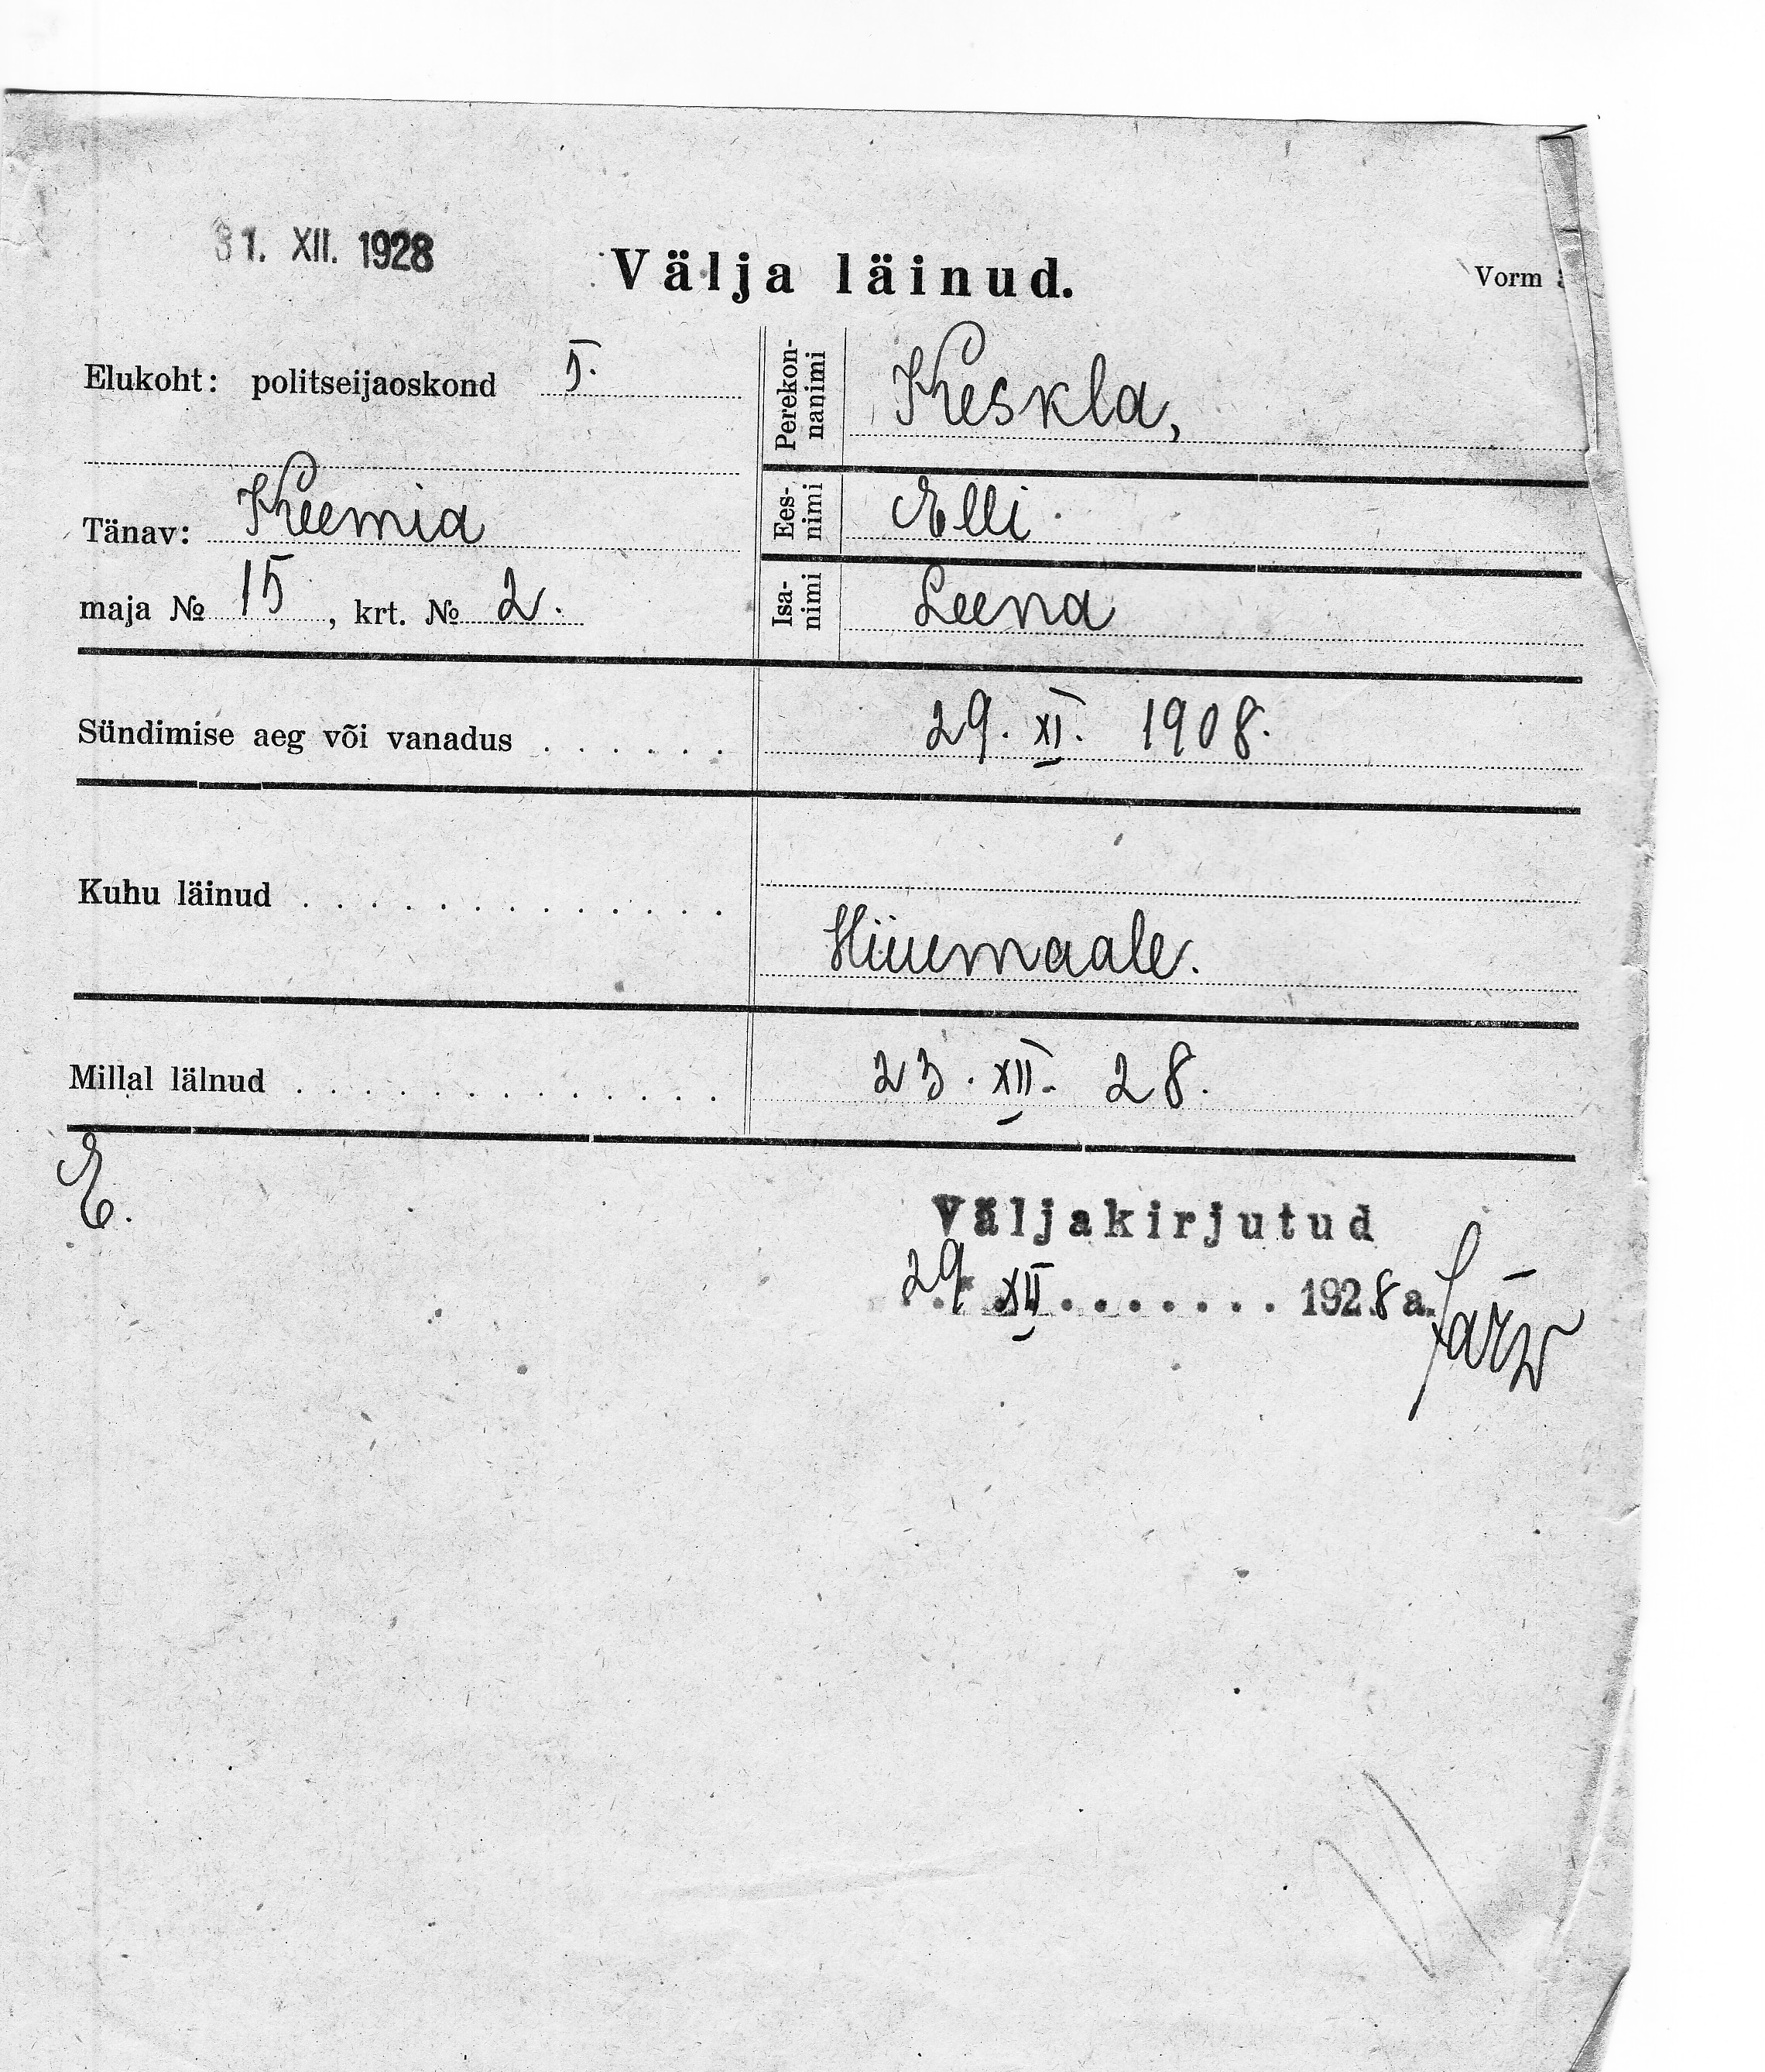 31. XII. 1928
Välja läinud.
Vorm
Elukoht: politseijaoskond I.
Perekon-
nanimi
Keskla,
Tänav: Keemia
Ees-
nimi
Elli.
maja № 15, krt. № 2.
Isa-
nimi
Leena
Sündimise aeg või vanadus . . . . . . 29. XI. 1908.
Kuhu läinud . . . . . . . . . . . . .
Hiiumaale.
Millal läinud . . . . . . . . . . . . . 23. XII. 28.
E.
Väljakirjutud
29 XII . . . . . . . 1928 a. Järw